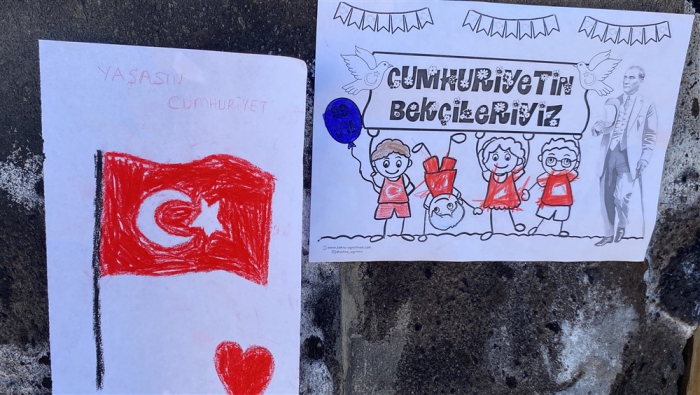 YAŞASIN
CUMHURİYET
CUMHURİYETİN
BEKÇİLERİYİZ